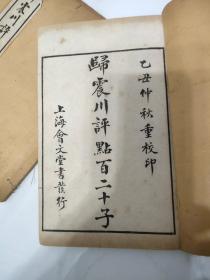 乙丑仲秋重校印
歸震川評點百二十子
上海會文堂書發行
震川評